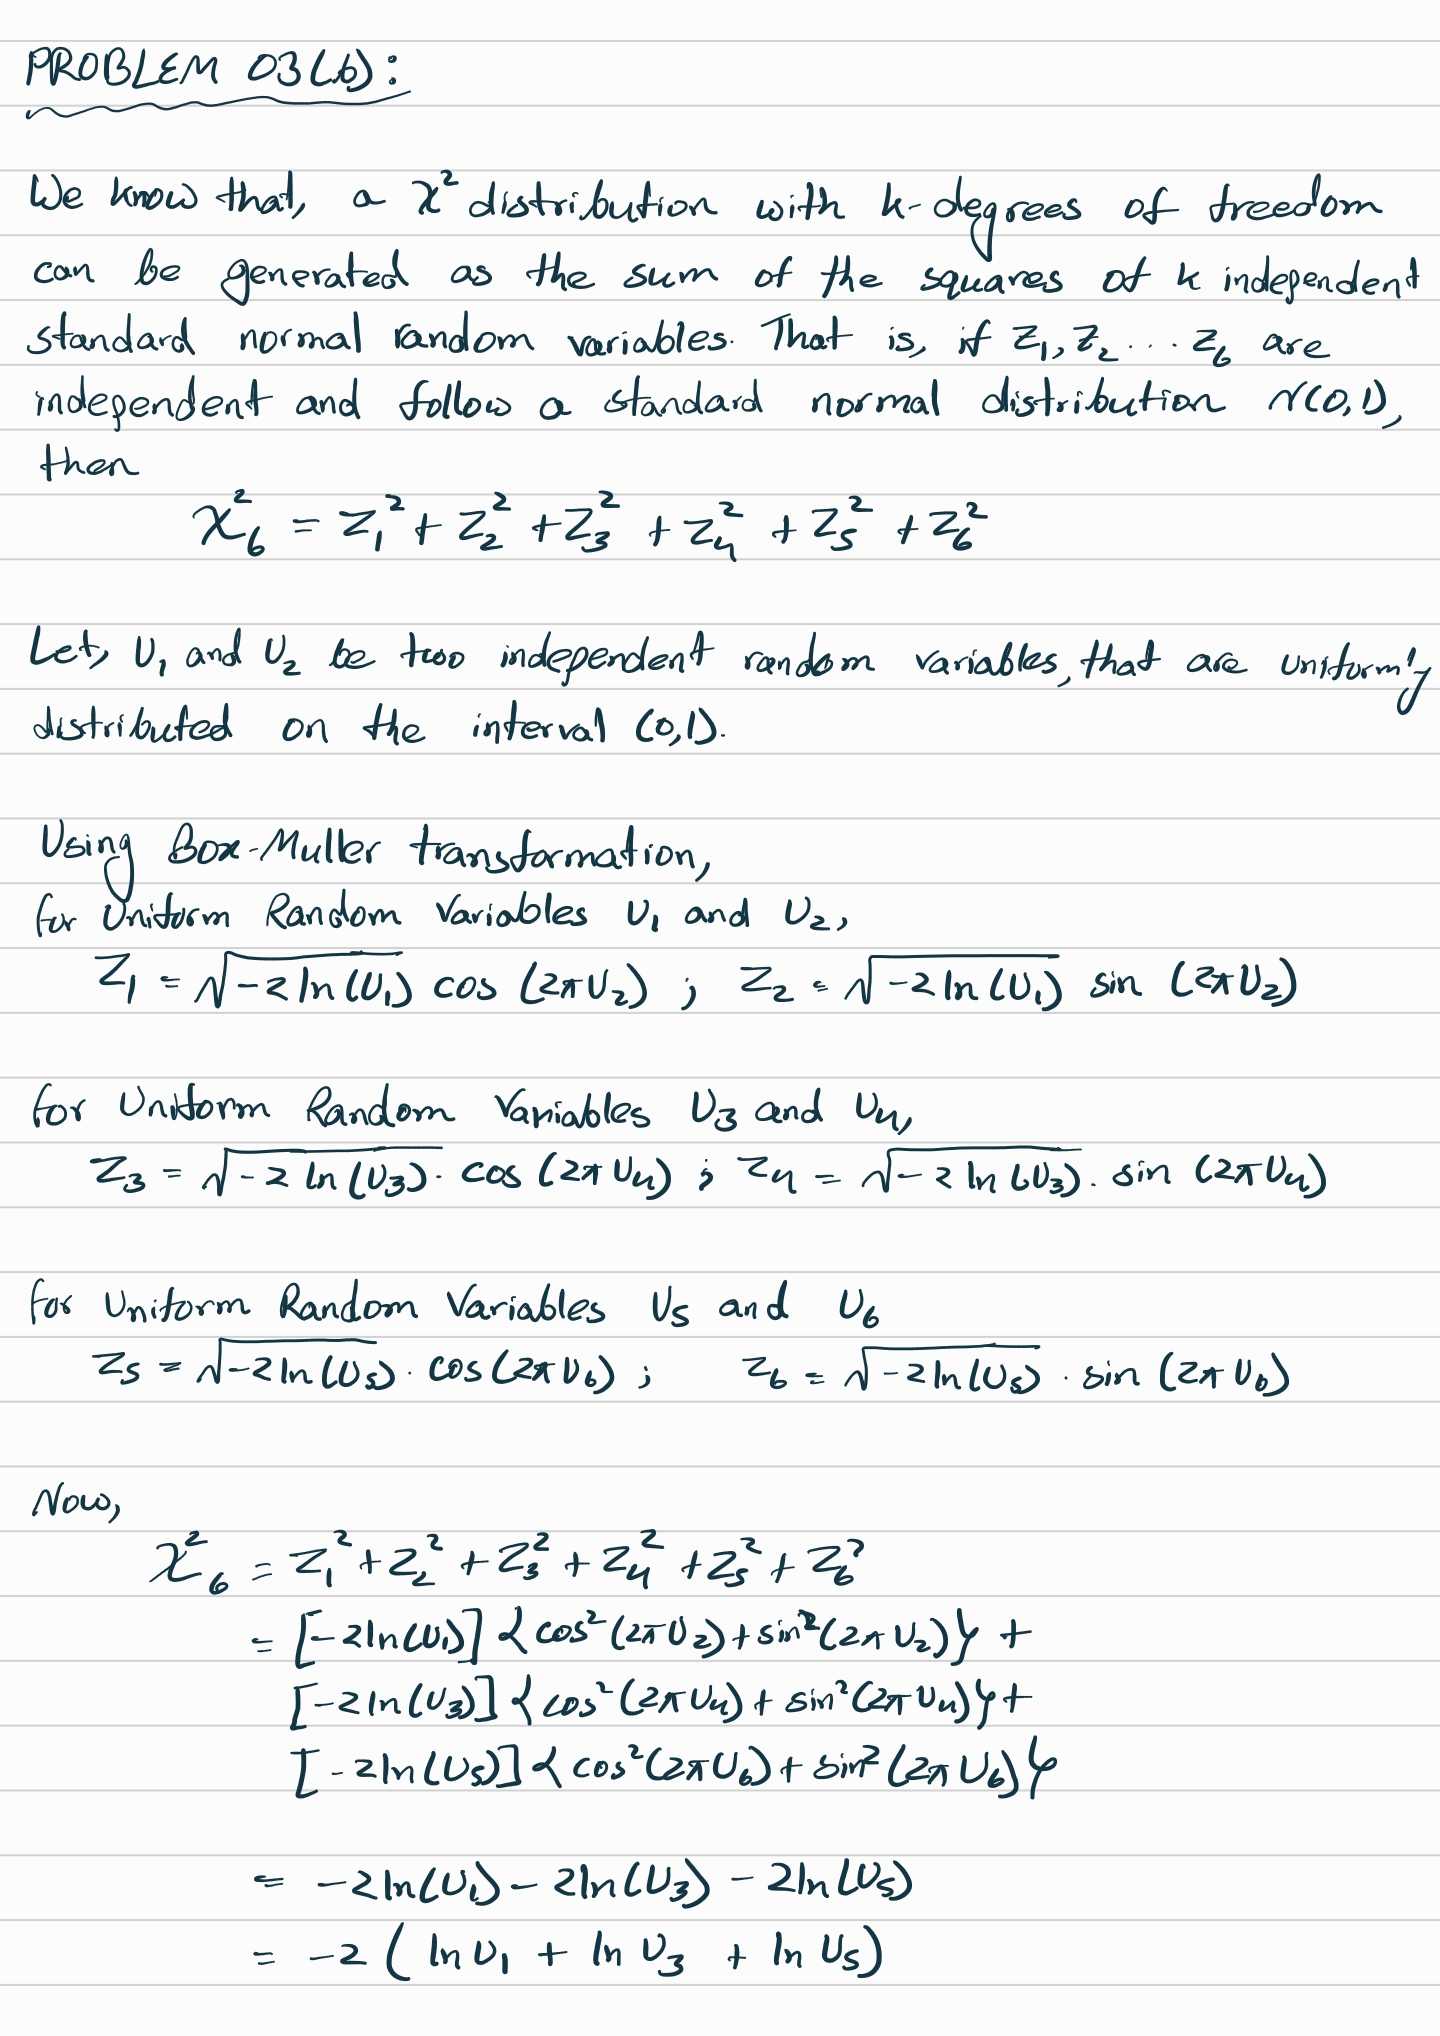 PROBLEM 03(b):
We know that, a χ² distribution with k-degrees of freedom
can be generated as the sum of the squares of k independent
standard normal random variables. That is, if Z₁, Z₂ ... Z₆ are
independent and follow a standard normal distribution N(0,1),
then
χ²₆ = Z₁² + Z₂² + Z₃² + Z₄² + Z₅² + Z₆²
Let, U₁ and U₂ be two independent random variables, that are uniformly
distributed on the interval (0,1).
Using Box-Muller transformation,
for Uniform Random Variables U₁ and U₂,
Z₁ = √(-2 ln(U₁)) cos (2πU₂) ; Z₂ = √(-2 ln(U₁)) sin (2πU₂)
for Uniform Random Variables U₃ and U₄,
Z₃ = √(-2 ln(U₃)) · cos (2πU₄) ; Z₄ = √(-2 ln(U₃)) · sin (2πU₄)
for Uniform Random Variables U₅ and U₆
Z₅ = √(-2 ln(U₅)) · cos(2πU₆) ; Z₆ = √(-2 ln(U₅)) · sin (2πU₆)
Now,
χ²₆ = Z₁² + Z₂² + Z₃² + Z₄² + Z₅² + Z₆²
= [-2ln(U₁)] {cos²(2πU₂) + sin²(2πU₂)} +
[-2ln(U₃)] {cos²(2πU₄) + sin²(2πU₄)} +
[-2ln(U₅)] {cos²(2πU₆) + sin²(2πU₆)}
= -2ln(U₁) - 2ln(U₃) - 2ln(U₅)
= -2 ( ln U₁ + ln U₃ + ln U₅)